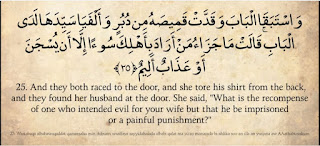 وَاسْتَبَقَا الْبَابَ وَقَدَّتْ قَمِيصَهُ مِن دُبُرٍ وَأَلْفَيَا سَيِّدَهَا لَدَى
الْبَابِ ۚ قَالَتْ مَا جَزَاءُ مَنْ أَرَادَ بِأَهْلِكَ سُوءًا إِلَّا أَن يُسْجَنَ
أَوْ عَذَابٌ أَلِيمٌ ﴿٢٥﴾
25. And they both raced to the door, and she tore his shirt from the back,
and they found her husband at the door. She said, "What is the recompense
of one who intended evil for your wife but that he be imprisoned
or a painful punishment?"